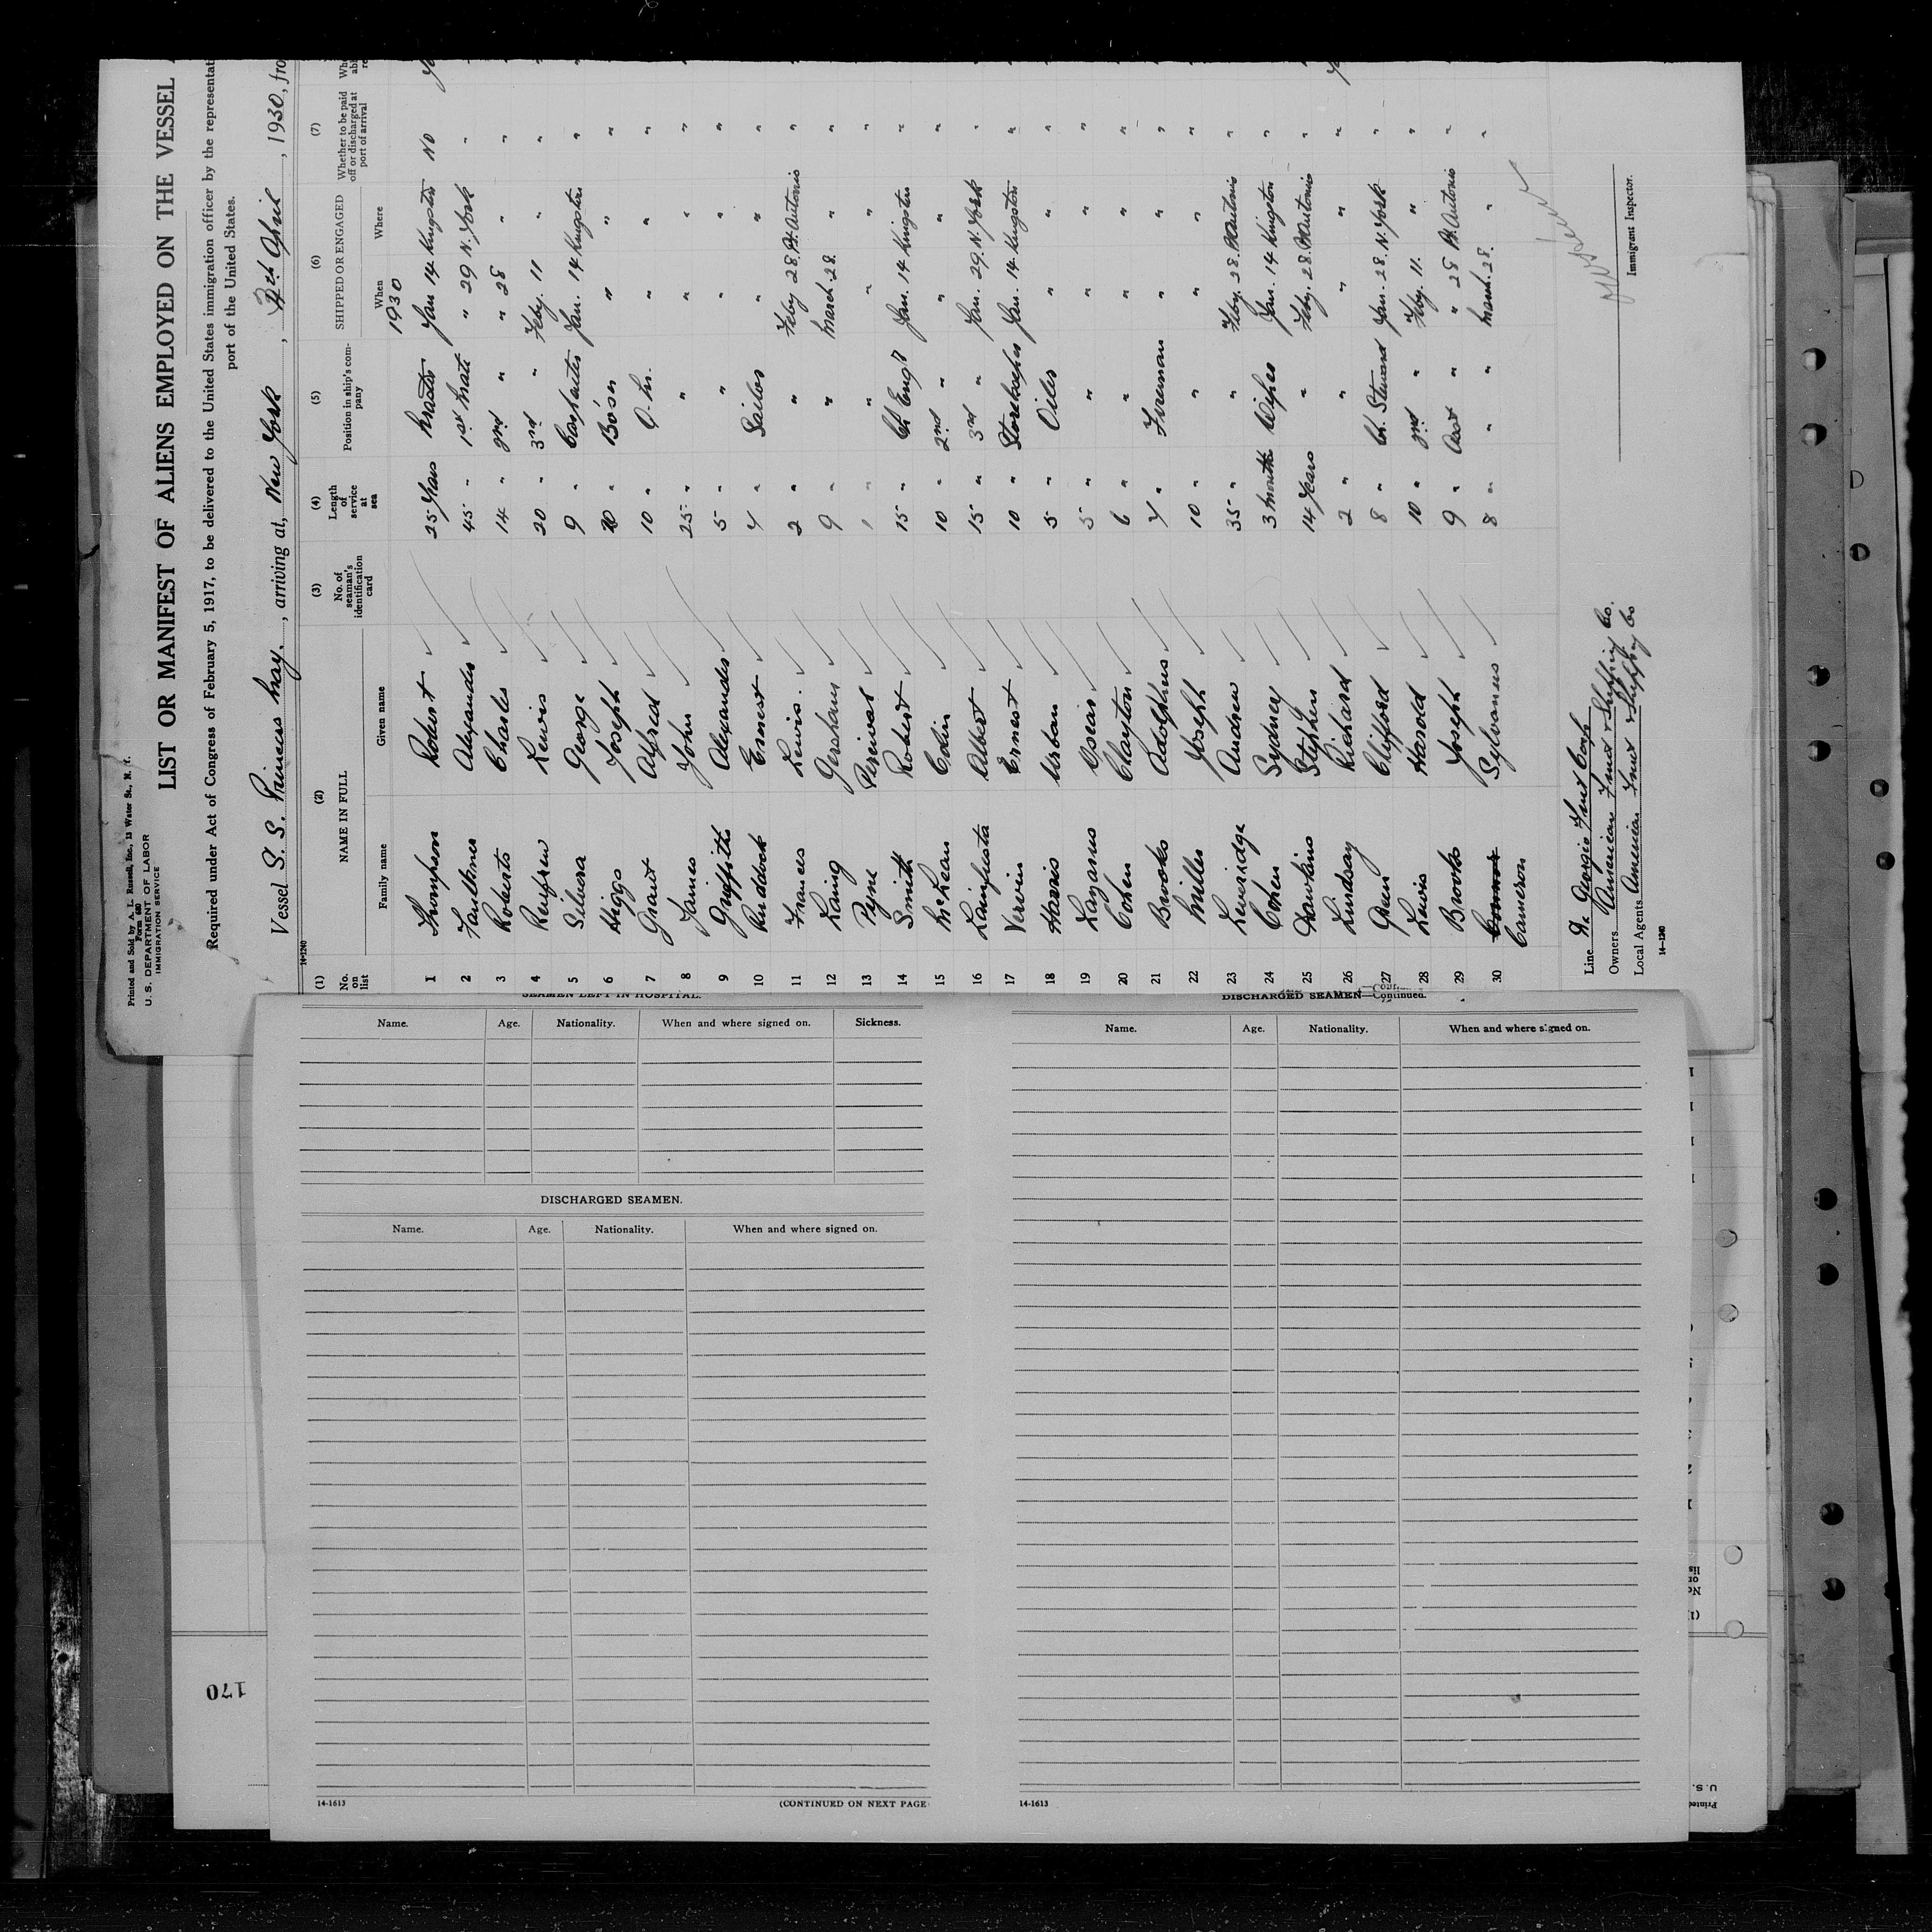 Printed and Sold by A. L. Russell, Inc., 13 Water St., N. Y.
Form 680
U. S. DEPARTMENT OF LABOR
IMMIGRATION SERVICE
LIST OR MANIFEST OF ALIENS EMPLOYED ON THE VESSEL
Required under Act of Congress of February 5, 1917, to be delivered to the United States immigration officer by the representati
port of the United States.
Vessel S. S. Princess May., arriving at, New York, April, 1930, fro
14-1240
(1) (2) (3) (4) (5) (6) (7)
No. on list NAME IN FULL No. of seaman's identification card Length of service at sea Position in ship's company SHIPPED OR ENGAGED Whether to be paid off or discharged at port of arrival
Family name Given name When Where
1930
1 Thompson Robert 25 Years Master Jan 14 Kingston No
2 Faulkner Alexander 45 " 1st Mate " 29 N. York "
3 Roberts Charles 14 " 2nd " " 28 " "
4 Renfrew Lewis 20 " 3rd " Feby. 11 " "
5 Silvera George 9 " Carpenter Jan. 14 Kingston "
6 Higgs Joseph 20 " Bo'sn " " "
7 Grant Alfred 10 " Q. Mr. " " "
8 James John 25 " " " " "
9 Griffiths Alexander 5 " " " " "
10 Ruddock Ernest 4 " Sailor " " "
11 Frances Lewis. 2 " " Feby 28 Pt. Antonio "
12 Laing Gersham 9 " " March 28. " "
13 Pyne Percival 1 " " " " "
14 Smith Robert 15 " Ch Engr Jan. 14 Kingston "
15 McLean Colin 10 " 2nd " " " "
16 Lainfiesta Albert 15 " 3rd " Jan. 29. N. York "
17 Vervin Ernest 10 " Storekeeper Jan. 14 Kingston "
18 Harris Urban 5 " Oiler " " "
19 Lazarus Oscar 5 " " " " "
20 Cohen Clayton 6 " " " " "
21 Brooks Adolphus 4 " Fireman " " "
22 Miller Joseph 10 " " " " "
23 Leveridge Andrew 35 " " Feby. 28. Pt Antonio "
24 Cohen Sydney 3 months Wiper Jan. 14 Kingston "
25 Dawkins Stephen 14 Years " Feby. 28. Pt Antonio "
26 Lindsay Richard 2 " " " " "
27 Green Clifford 8 " Ch. Steward Jan. 28. N. York "
28 Lewis Harold 10 " 2nd " Feby. 11. " "
29 Brooks Joseph 9 " Asst " " 28 Pt. Antonio "
30 Cameron Sylvanus 8 " " March. 28. " "
Line Di Georgio Fruit Corp
Owners American Fruit & Shipping Co.
Local Agents American Fruit & Shipping Co
14-1240
Immigrant Inspector.
SEAMEN LEFT IN HOSPITAL.
Name. Age. Nationality. When and where signed on. Sickness.
DISCHARGED SEAMEN.
Name. Age. Nationality. When and where signed on.
14-1613
(CONTINUED ON NEXT PAGE
DISCHARGED SEAMEN—Continued.
Name. Age. Nationality. When and where signed on.
14-1613
170
(1)
No. on lis
U. S.
Printed